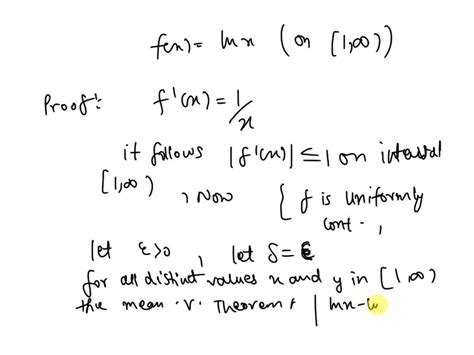 f(x) = lnx (on [1,∞))
Proof: f'(x) = 1/x
it follows |f'(x)| ≤ 1 on interval
[1,∞) , Now { f is uniformly
cont.,
let ε>0 , let δ = ε
for all distinct values x and y in [1,∞)
the mean .V. Theorem | lnx-